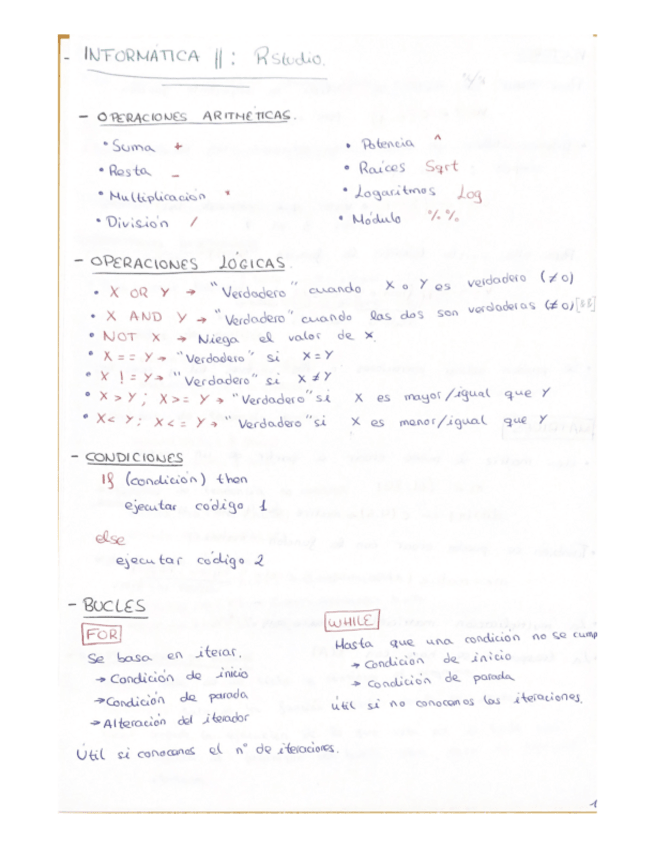 - INFORMÁTICA II: RStudio.
- OPERACIONES ARITMÉTICAS.
• Suma +
• Resta -
• Multiplicación *
• División /
• Potencia ^
• Raíces Sqrt
• Logaritmos Log
• Módulo %%
- OPERACIONES LÓGICAS.
• X OR Y → "Verdadero" cuando X o Y es verdadero (≠0)
• X AND Y → "Verdadero" cuando las dos son verdaderas (≠0) [&&]
• NOT X → Niega el valor de X.
• X == Y → "Verdadero" si X = Y
• X != Y → "Verdadero" si X ≠ Y
• X > Y; X >= Y → "Verdadero" si X es mayor/igual que Y
• X < Y; X <= Y → "Verdadero" si X es menor/igual que Y
- CONDICIONES
If (condición) then
ejecutar código 1
else
ejecutar código 2
- BUCLES
FOR
Se basa en iterar.
→ Condición de inicio
→ Condición de parada
→ Alteración del iterador
Útil si conocemos el nº de iteraciones.
WHILE
Hasta que una condición no se cump
→ Condición de inicio
→ Condición de parada
útil si no conocemos las iteraciones.
1